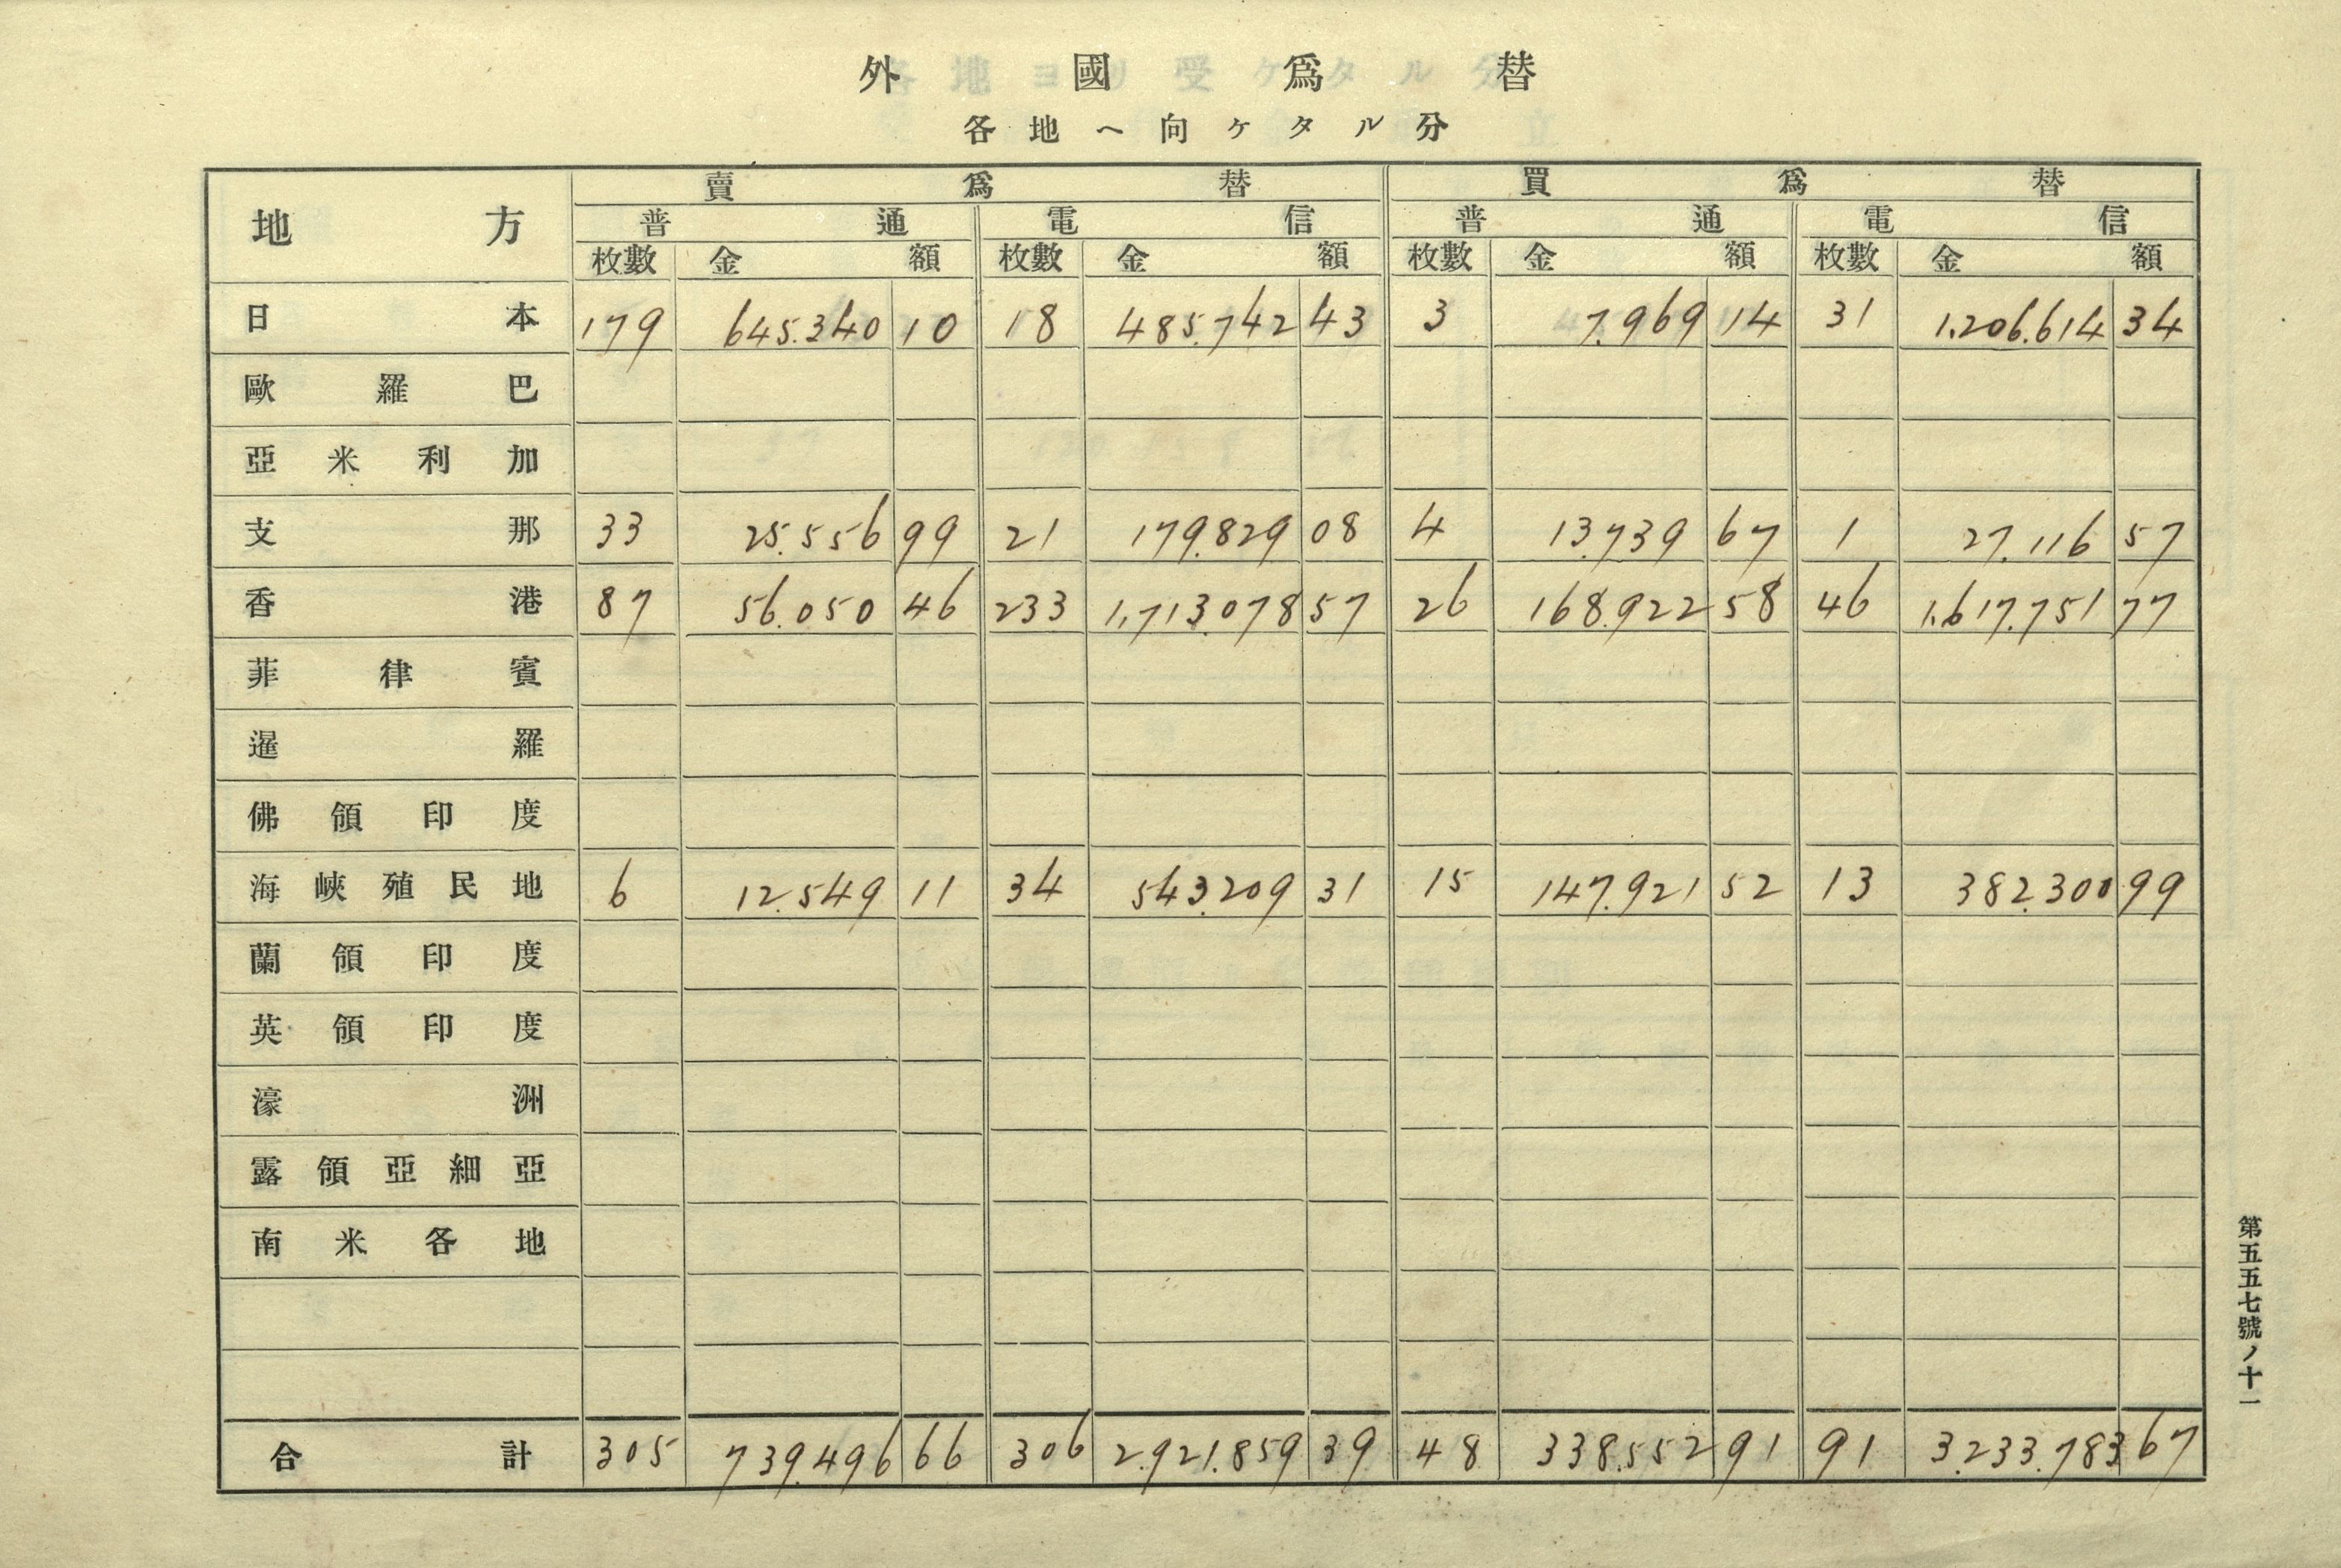 外國爲替
各地ヘ向ケタル分
地方 賣爲替 買爲替
普通 電信 普通 電信
枚數 金額 枚數 金額 枚數 金額 枚數 金額
日本 179 645.340 10 18 485.742 43 3 7.969 14 31 1.206.614 34
歐羅巴
亞米利加
支那 33 25.556 99 21 179.829 08 4 13.739 67 1 27.116 57
香港 87 56.050 46 233 1,713.078 57 26 168.922 58 46 1.617.751 77
菲律賓
暹羅
佛領印度
海峽殖民地 6 12.549 11 34 543.209 31 15 147.921 52 13 382.300 99
蘭領印度
英領印度
濠洲
露領亞細亞
南米各地
合計 305 739.496 66 306 2.921.859 39 48 338.552 91 91 3.233.783 67
第五五七號ノ十一